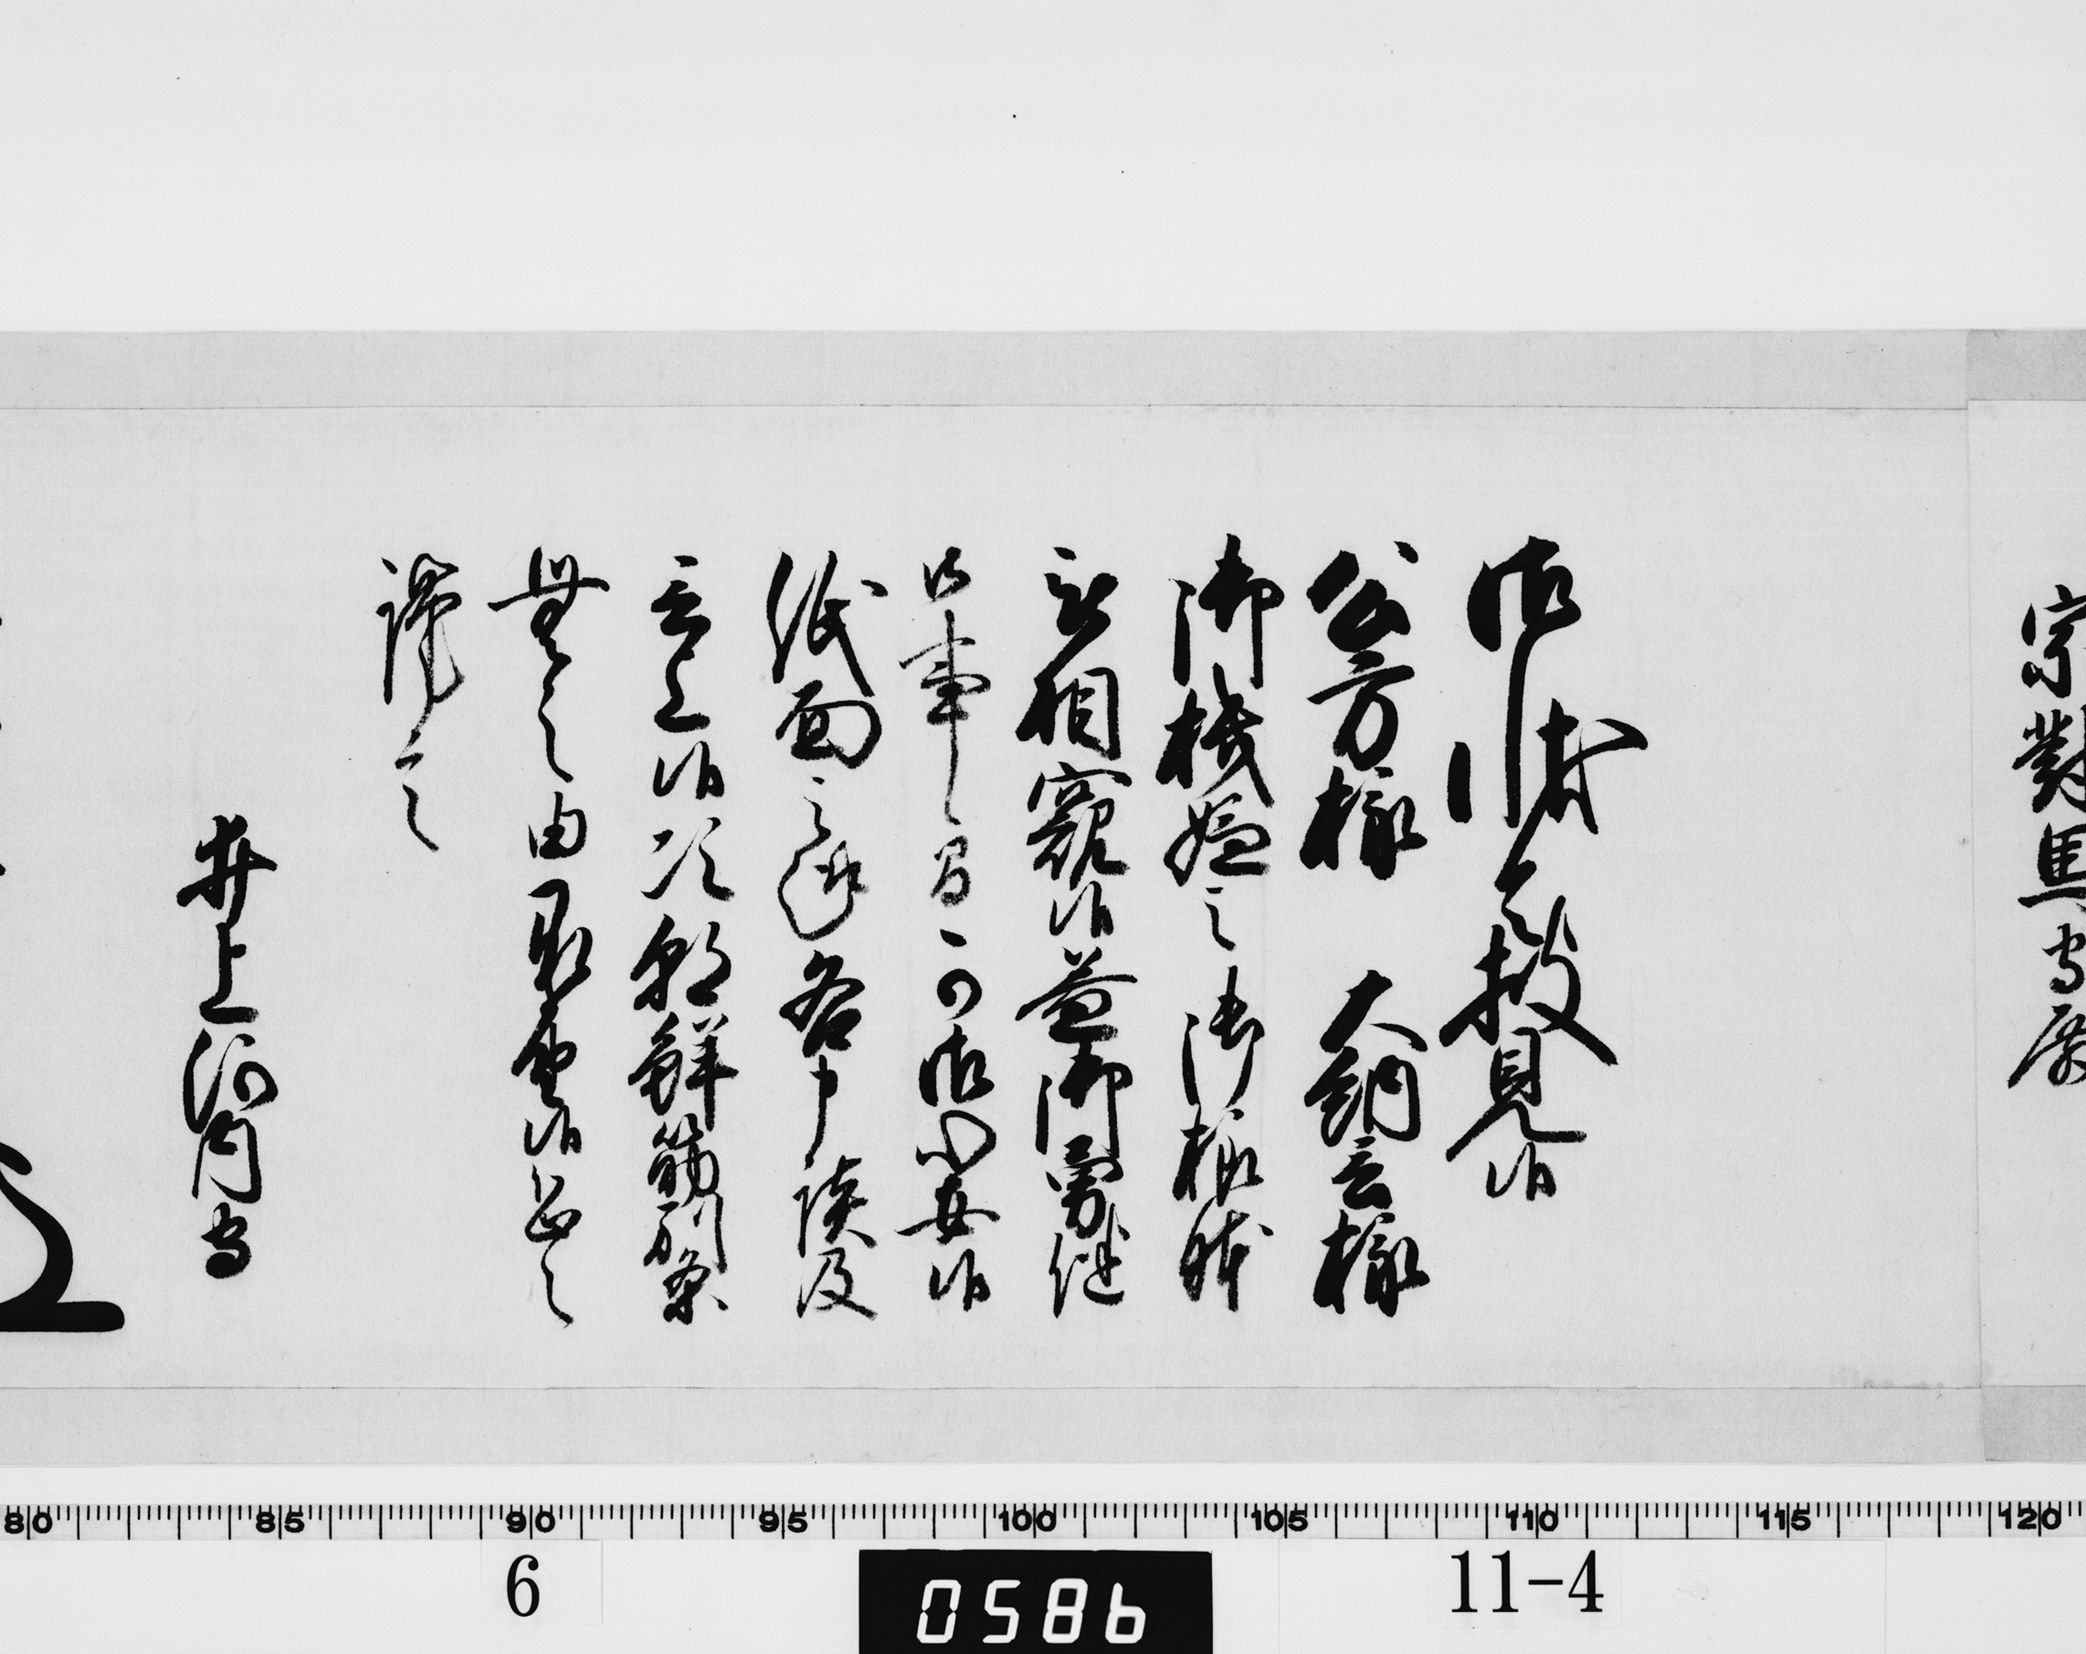 宗對馬守殿
御状令披見候
公方様　大納言様
御機嫌之御様躰
被相窺候益御勇健
御事候間可御心安候
紙面之趣各申談及
言上候次朝鮮筋別条
無之由候恐々
謹言
井上河内守
6
0586
11-4
80 85 90 95 100 105 110 115 120